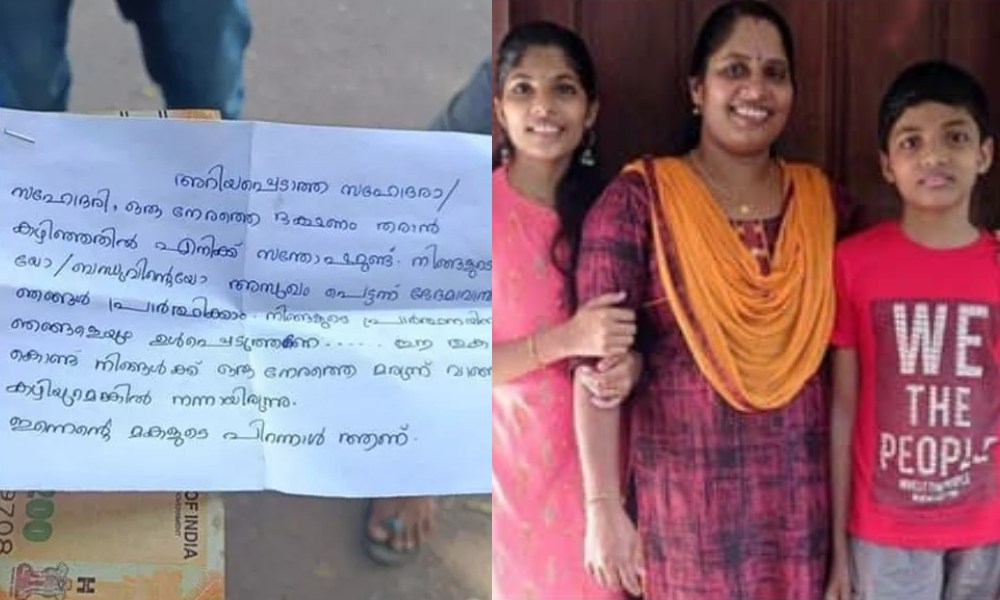 അറിയപ്പെടാത്ത സഹോദരാ/
സഹോദരി, ഒരു നേരത്തെ ഭക്ഷണം തരാൻ
കഴിഞ്ഞതിൽ എനിക്ക് സന്തോഷമുണ്ട്. നിങ്ങളുടെ
യോ/ബന്ധുവിന്റെയോ അസുഖം പെട്ടന്ന് ഭേദമാവാൻ
ഞങ്ങൾ പ്രാർത്ഥിക്കാം. നിങ്ങളുടെ പ്രാർത്ഥനയിൽ
ഞങ്ങളെയും ഉൾപെടുത്തണേ...... ഈ തുക
കൊണ്ട് നിങ്ങൾക്ക് ഒരു നേരത്തെ മരുന്ന് വാങ്ങ
കഴിയുമെങ്കിൽ നന്നായിരുന്നു.
ഇന്നെന്റെ മകളുടെ പിറന്നാൾ ആണ്.
OF INDIA
200
9708
WE
THE
PEOPLE